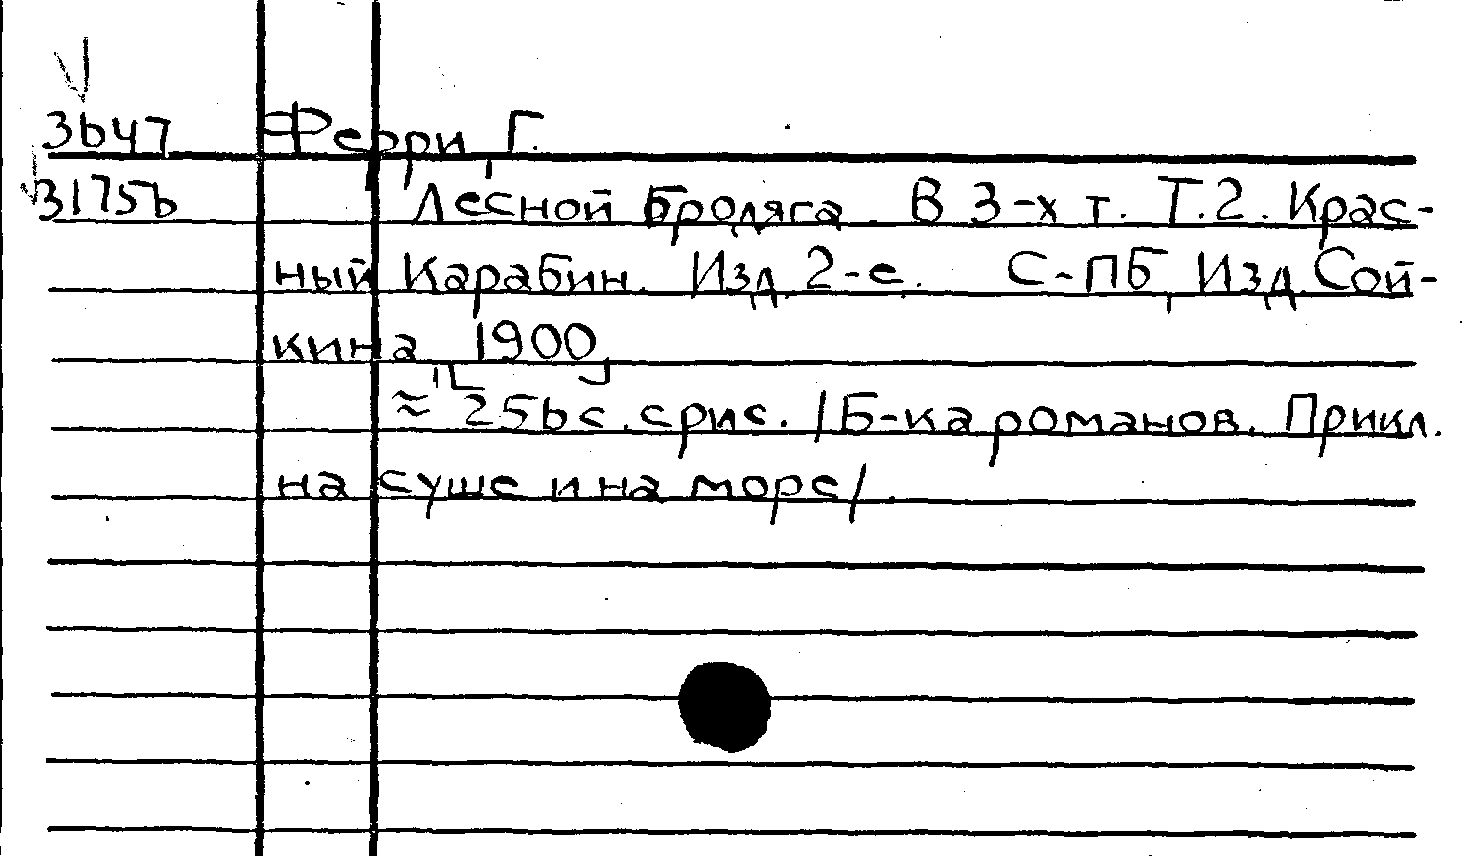 3647 Ферри, Г.
31756 Лесной бродяга. В 3-х т. Т.2. Крас-
ный Карабин. Изд. 2-е. С-ПБ, Изд. Сой-
кина, 1900,
≈ 256 с. с рис. /Б-ка романов. Прикл.
на суше и на море/.